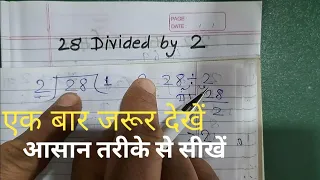 PAGE
DATE
28 Divided by 2
2 ) 28 ( 1
28 ÷ 2
28
2
2
एक बार जरूर देखें
आसान तरीके से सीखें